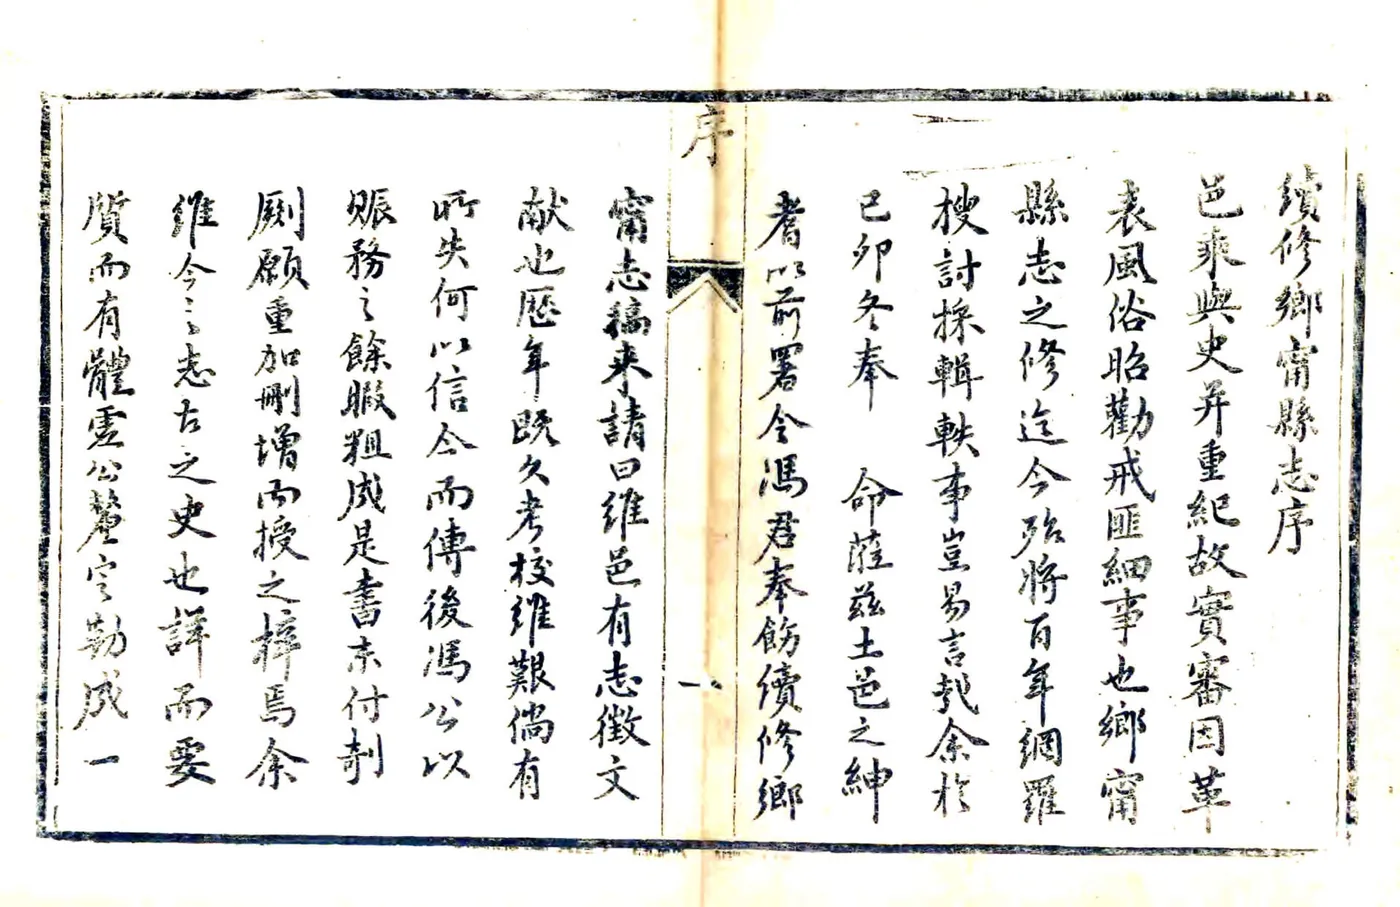 續修鄉甯縣志序
邑乘與史并重紀故實審因革
表風俗昭勸戒匪細事也鄉甯
縣志之修迄今殆將百年網羅
搜討採輯軼事豈易言哉余於
己卯冬奉 命蒞茲土邑之紳
耆以前署令馮君奉飭續修鄉
序
一
甯志稿来請曰維邑有志徵文
献也歷年既久考校維艱倘有
所失何以信今而傳後馮公以
賑務之餘暇粗成是書未付剞
劂願重加刪增而授之梓焉余
維今之志古之史也詳而要
質而有體電公釐定勒成一